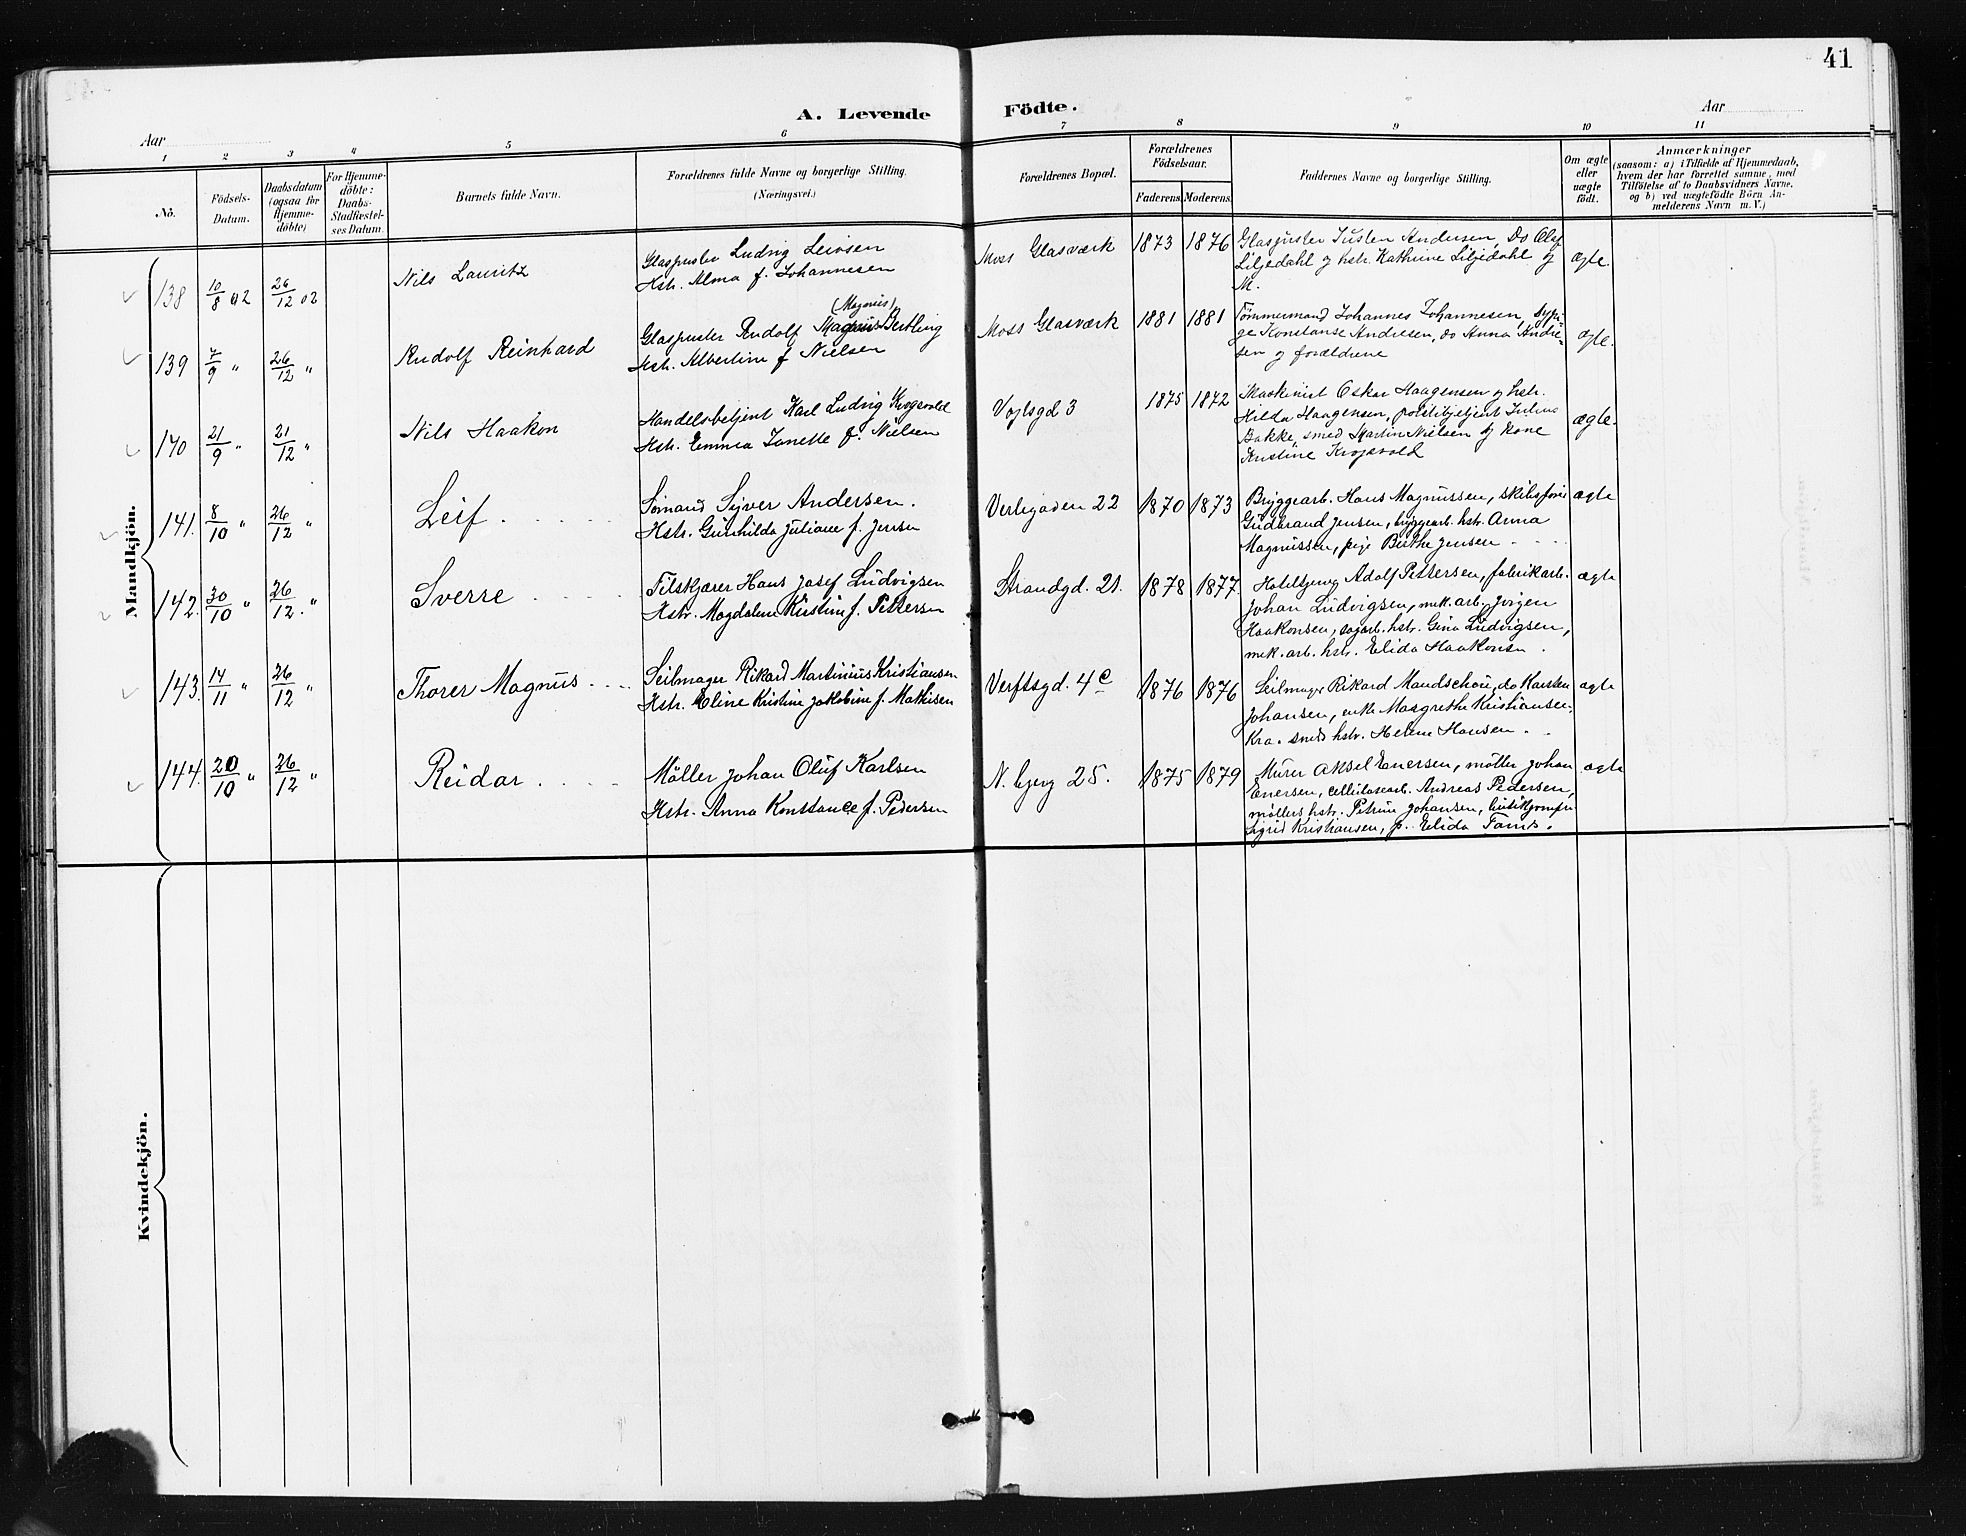 41
A. Levende Födte.
Aar
Aar
1 2 3 4 5 6 7 8 9 10 11
No.
Födsels-
Datum.
Daabsdatum
(ogsaa for
Hjemme-
döbte)
For Hjemme-
döbte:
Daabs-
Stadfæstel-
ses Datum.
Barnets fulde Navn.
Forældrenes fulde Navne og borgerlige Stilling.
(Næringsvei.)
Forældrenes Bopæl.
Forældrenes
Födselsaar.
Faderens.
Moderens.
Faddernes Navne og borgerlige Stilling.
Om ægte
eller
uægte
födt.
Anmærkninger
(saasom: a) i Tilfælde af Hjemmedaab,
hvem der har forrettet samme, med
Tilföielse af to Daabsvidners Navne,
og b) ved uægtefödte Börn An-
melderens Navn m. V.)
Mandkjön.
138 10/8 02 26/12 02
Nils Lauritz
Glaspuster Ludvig Leivsen
Hstr. Alma f. Johannesen
Moss Glasværk
1873 1876
Glaspuster Justen Andersen, Do Olaf
Liljedahl og hstr. Kathrine Liljedahl og
M.
ægte.
139 7/9 " 26/12 "
Rudolf Reinhard
(Magnus)
Glaspuster Rudolf Magnus Bertling
Hstr. Albertine f Nielsen
Moss Glasværk
1881 1881
Tömmermand Johannes Johannesen, sypi-
ge Konstanse Andresen, do Anna Andre-
sen og forældrene
ægte.
140 21/9 " 21/12 "
Nils Haakon
Handelsbetjent Karl Ludvig Krogsvold
Hstr. Emma Janette f. Nielsen
Vogtsgd 3
1875 1872
Maskinist Oskar Haagensen og hstr.
Hilda Haagensen, politibetjent Julius
Bakke, smed Martin Nielsen og kone
Kristine Krogsvold
ægte.
141. 8/10 " 26/12 "
Leif
Sömand Syver Andersen.
Hstr. Gunhilda Juliane f. Jensen
Verlegaden 22
1870 1873
Bryggearb. Hans Magnussen, skibsförer
Gudbrand Jensen, bryggearb. hstr. Anna
Magnussen, pige Berthe Jensen
ægte
142. 30/10 " 26/12. "
Sverre
Filskjærer Hans Josef Ludvigsen
Hstr. Magdalene Kirstine f. Pettersen
Strandgd. 21.
1878 1877.
Hotelbjerg Adolf Pettersen, fabrikarb.
Johan Ludvigsen, mek. arb. Jörgen
Haakonsen, sagarb. hstr. Gina Ludvigsen,
mek. arb. hstr. Elida Haakonsen.
ægte
143. 14/11 " 26/12 "
Thorer Magnus
Seilmager Rikard Martinius Kristiansen
Hstr. Eline Kristine Jakobine f. Mathisen
Verftsgd. 4c
1876 1876
Seilmager Rikard Mandschou, do Karsten
Johansen, enke Margrethe Kristiansen,
Kra. smeds hstr. Helene Hansen.
ægte
144. 20/10 " 26/12 "
Reidar
Möller Johan Oluf Karlsen
Hstr. Anna Konstance f. Pedersen
N. bjerg 25.
1875 1879
Murer Aksel Enersen, möller Johan
Enersen, cellulosearb. Andreas Pedersen,
möllers hstr. Petrine Johansen, butikjomfru
Sigrid Kristiansen, p. Elida Fams.
ægte
Kvindekjön.